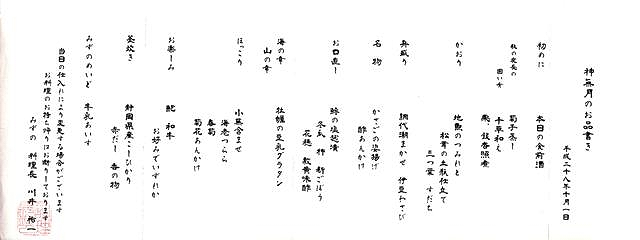 神無月のお品書き
平成二十八年十月一日
初めに
本日の食前酒
秋の夜長の
菊子茶し
囲い女
十草和え
かおり
地魚のつみれと
松茸の土瓶仕立て
三つ葉 すだち
舟盛り
網代湖まかせ 伊豆わさび
名物
かさごの姿揚げ
酢あんかけ
お口直し
鯵の塩麹漬
冬瓜 柿 新ごぼう
花穂 穀黄味酢
海の幸
山の幸
牡蠣の豆乳グラタン
ほっこり
小蕪含ませ
海老つらら
春菊
菊花あんかけ
お楽しみ
鮑 和牛
お好みでいずれか
釜炊き
静岡県産こしひかり
赤だし 香の物
みずのめいど
牛乳あいす
当日の仕入れにより変更する場合がございます
お料理のお持ち帰りはお断りしております
みずの 料理長 川井 裕一